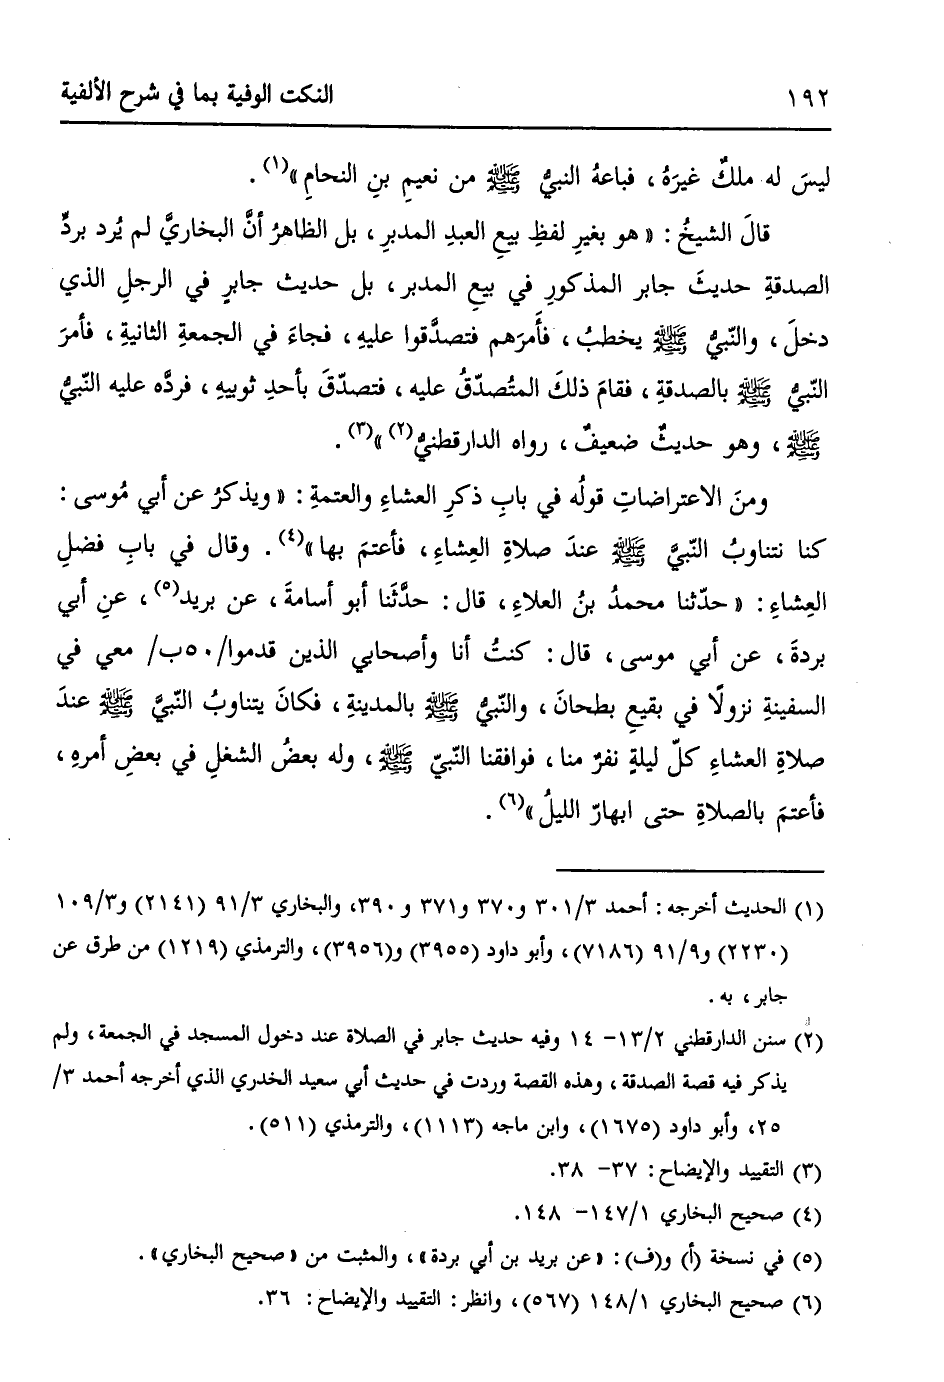 ١٩٢ النكت الوفية بما في شرح الألفية
ليسَ له ملكٌ غيرَهُ ، فباعهُ النبيُّ ﷺ من نعيمِ بنِ النحامِ »(١) .
قالَ الشيخُ : « هو بغيرِ لفظِ بيعِ العبدِ المدبرِ ، بل الظاهرُ أنَّ البخاريَّ لم يُرد بردِّ
الصدقةِ حديثَ جابر المذكورِ في بيعِ المدبر ، بل حديث جابرٍ في الرجلِ الذي
دخلَ ، والنّبيُّ ﷺ يخطبُ ، فأَمرَهم فتصدَّقوا عليهِ ، فجاءَ في الجمعةِ الثانيةِ ، فأمرَ
النّبيُّ ﷺ بالصدقةِ ، فقامَ ذلكَ المتُصدّقُ عليه ، فتصدّقَ بأحدِ ثوبيهِ ، فردَّه عليه النّبيُّ
ﷺ ، وهو حديثٌ ضعيفٌ ، رواه الدارقطنيُّ(٢) »(٣) .
ومنَ الاعتراضاتِ قولُه في بابِ ذكرِ العشاءِ والعتمةِ : « ويذكرُ عن أبي مُوسى :
كنا نتناوبُ النبيَّ ﷺ عندَ صلاةِ العِشاءِ ، فأعتمَ بها »(٤) . وقال في بابِ فضلِ
العِشاءِ : « حدّثنا محمدُ بنُ العلاءِ ، قال : حدَّثَنا أبو أسامةَ ، عن بريد(٥) ، عنِ أبي
بردةَ ، عن أبي موسى ، قال : كنتُ أنا وأصحابي الذين قدموا/٥٠ب/ معي في
السفينةِ نزولًا في بقيعِ بطحانَ ، والنّبيُّ ﷺ بالمدينةِ ، فكانَ يتناوبُ النّبيَّ ﷺ عندَ
صلاةِ العشاءِ كلّ ليلةٍ نفرٌ منا ، فوافقنا النّبيّ ﷺ ، وله بعضُ الشغلِ في بعضِ أمرهِ ،
فأعتمَ بالصلاةِ حتى ابهارّ الليلُ »(٦) .
(١) الحديث أخرجه : أحمد ٣٠١/٣ و٣٧٠ و٣٧١ و٣٩٠، والبخاري ٩١/٣ (٢١٤١) و١٠٩/٣
(٢٢٣٠) و٩١/٩ (٧١٨٦)، وأبو داود (٣٩٥٥) و(٣٩٥٦)، والترمذي (١٢١٩) من طرق عن
جابر ، به .
(٢) سنن الدارقطني ١٣/٢– ١٤ وفيه حديث جابر في الصلاة عند دخول المسجد في الجمعة ، ولم
يذكر فيه قصة الصدقة ، وهذه القصة وردت في حديث أبي سعيد الخدري الذي أخرجه أحمد ٣/
٢٥، وأبو داود (١٦٧٥)، وابن ماجه (١١١٣)، والترمذي (٥١١).
(٣) التقييد والإيضاح : ٣٧– ٣٨.
(٤) صحيح البخاري ١٤٧/١– ١٤٨.
(٥) في نسخة (أ) و(ف) : « عن بريد بن أبي بردة» ، والمثبت من « صحيح البخاري» .
(٦) صحيح البخاري ١٤٨/١ (٥٦٧)، وانظر : التقييد والإيضاح : ٣٦.